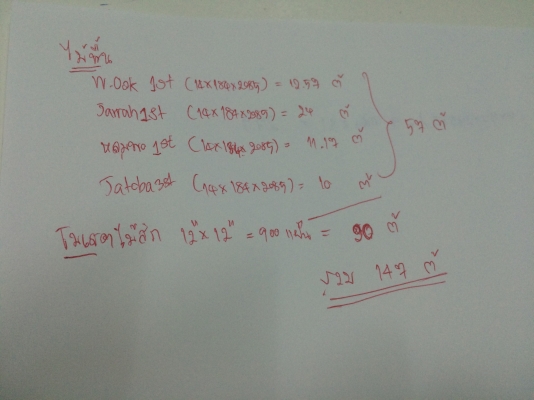 ไม้พื้น
W.Oak 1st (14x184x2085) = 12.57 ตั้
Jarrah 1st (14x184x2085) = 24 ตั้
1st (14x184x2085) = 11.17 ตั้
Jatoba 3st (14x184x2085) = 10 ตั้
57 ตั้
โมเสคไม้สัก 12" x 12" = 900 แผ่น = 90 ตั้
รวม 147 ตั้